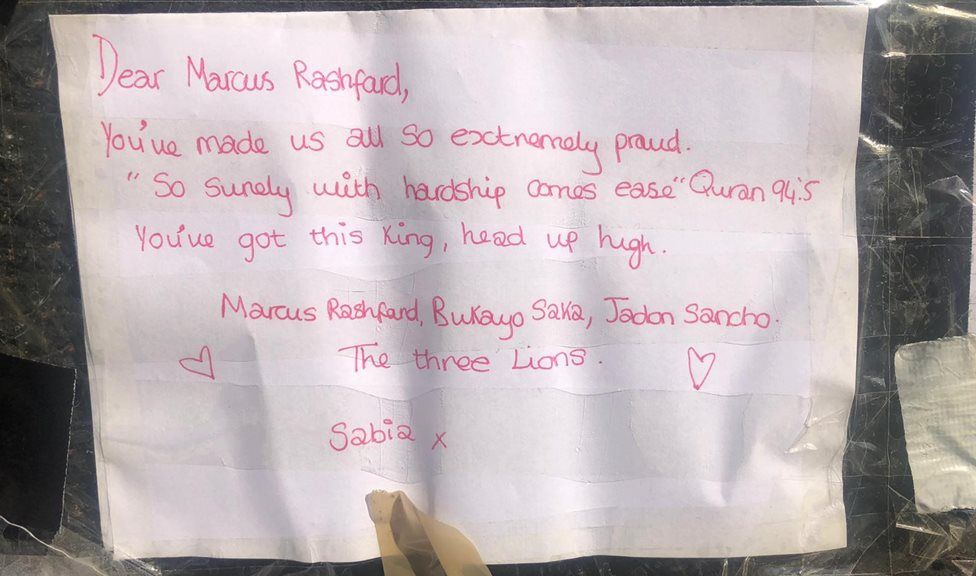 Dear Marcus Rashford,
You've made us all so extremely proud.
"So surely with hardship comes ease" Quran 94:5
You've got this King, head up high.
Marcus Rashford, Bukayo Saka, Jadon Sancho.
The three Lions.
Sabia x